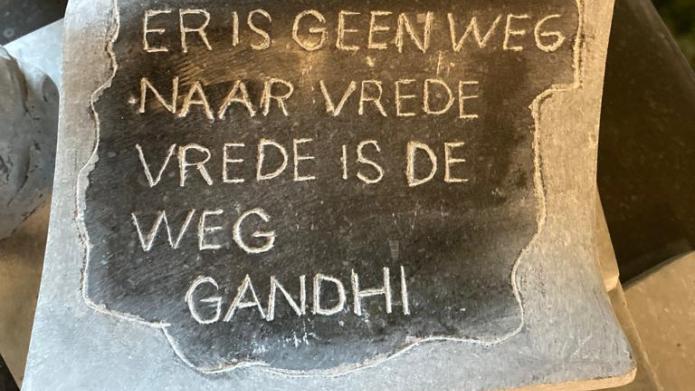 ER IS GEEN WEG
NAAR VREDE
VREDE IS DE
WEG
GANDHI